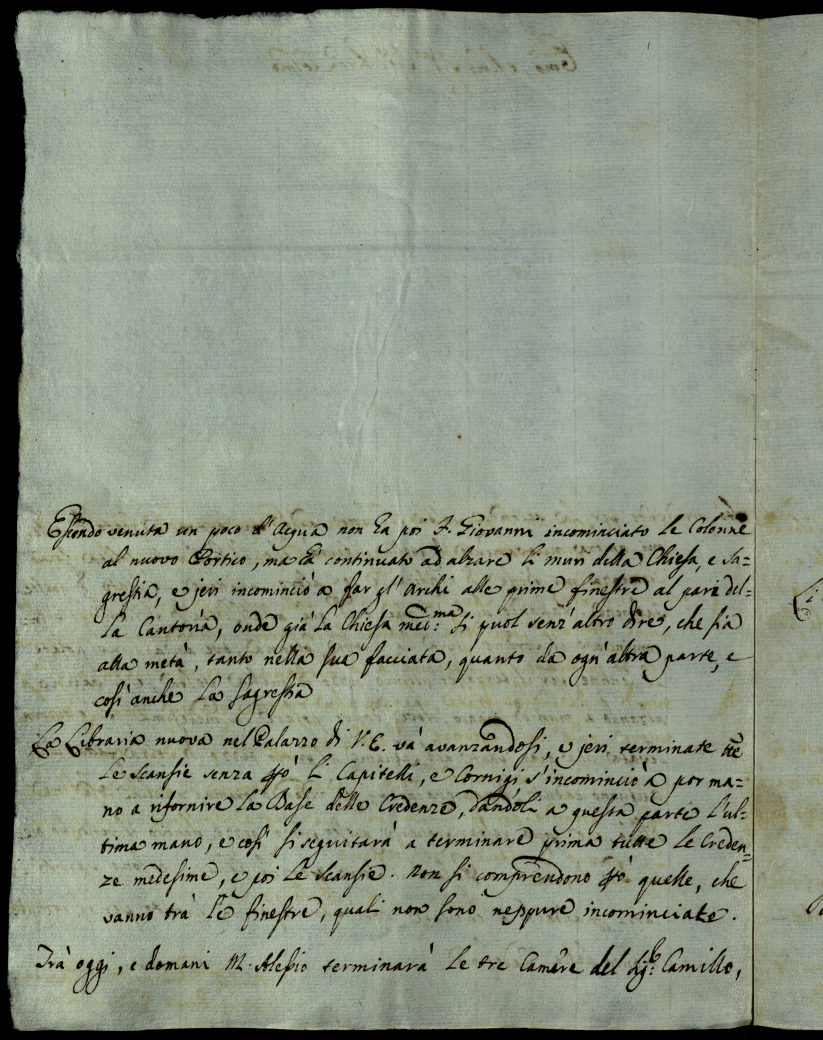 Essendo venuta un poco d'Acqua non ha poi F. Giovanni incominciato le Colonne
al nuovo Portico, ma hà continuato ad alzare li muri della Chiesa, e Sa=
grestia, e jeri incominciò a far gl'Archi alle prime finestre al pari del=
la Cantoria, onde già la Chiesa med:ma si puol senz'altro dire, che sia
alla metà, tanto nella sua facciata, quanto da ogn'altra parte, e
così anche la Sagrestia
La Libraria nuova nel Palazzo di V. E. và avanzandosi, e jeri terminate tte
le scansie senza però li Capitelli, e Cornigi s'incominciò a por ma=
no a rifornire la Base delle Credenze, dandoli a questa parte l'ul=
tima mano, e così si seguitarà a terminare prima tutte le Creden=
ze medesime, e poi le scansie. Non si comprendono però quelle, che
vanno trà le finestre, quali non sono neppure incominciate.
Trà oggi, e domani M. Alessio terminarà le tre Camere del Sig:re Camillo,